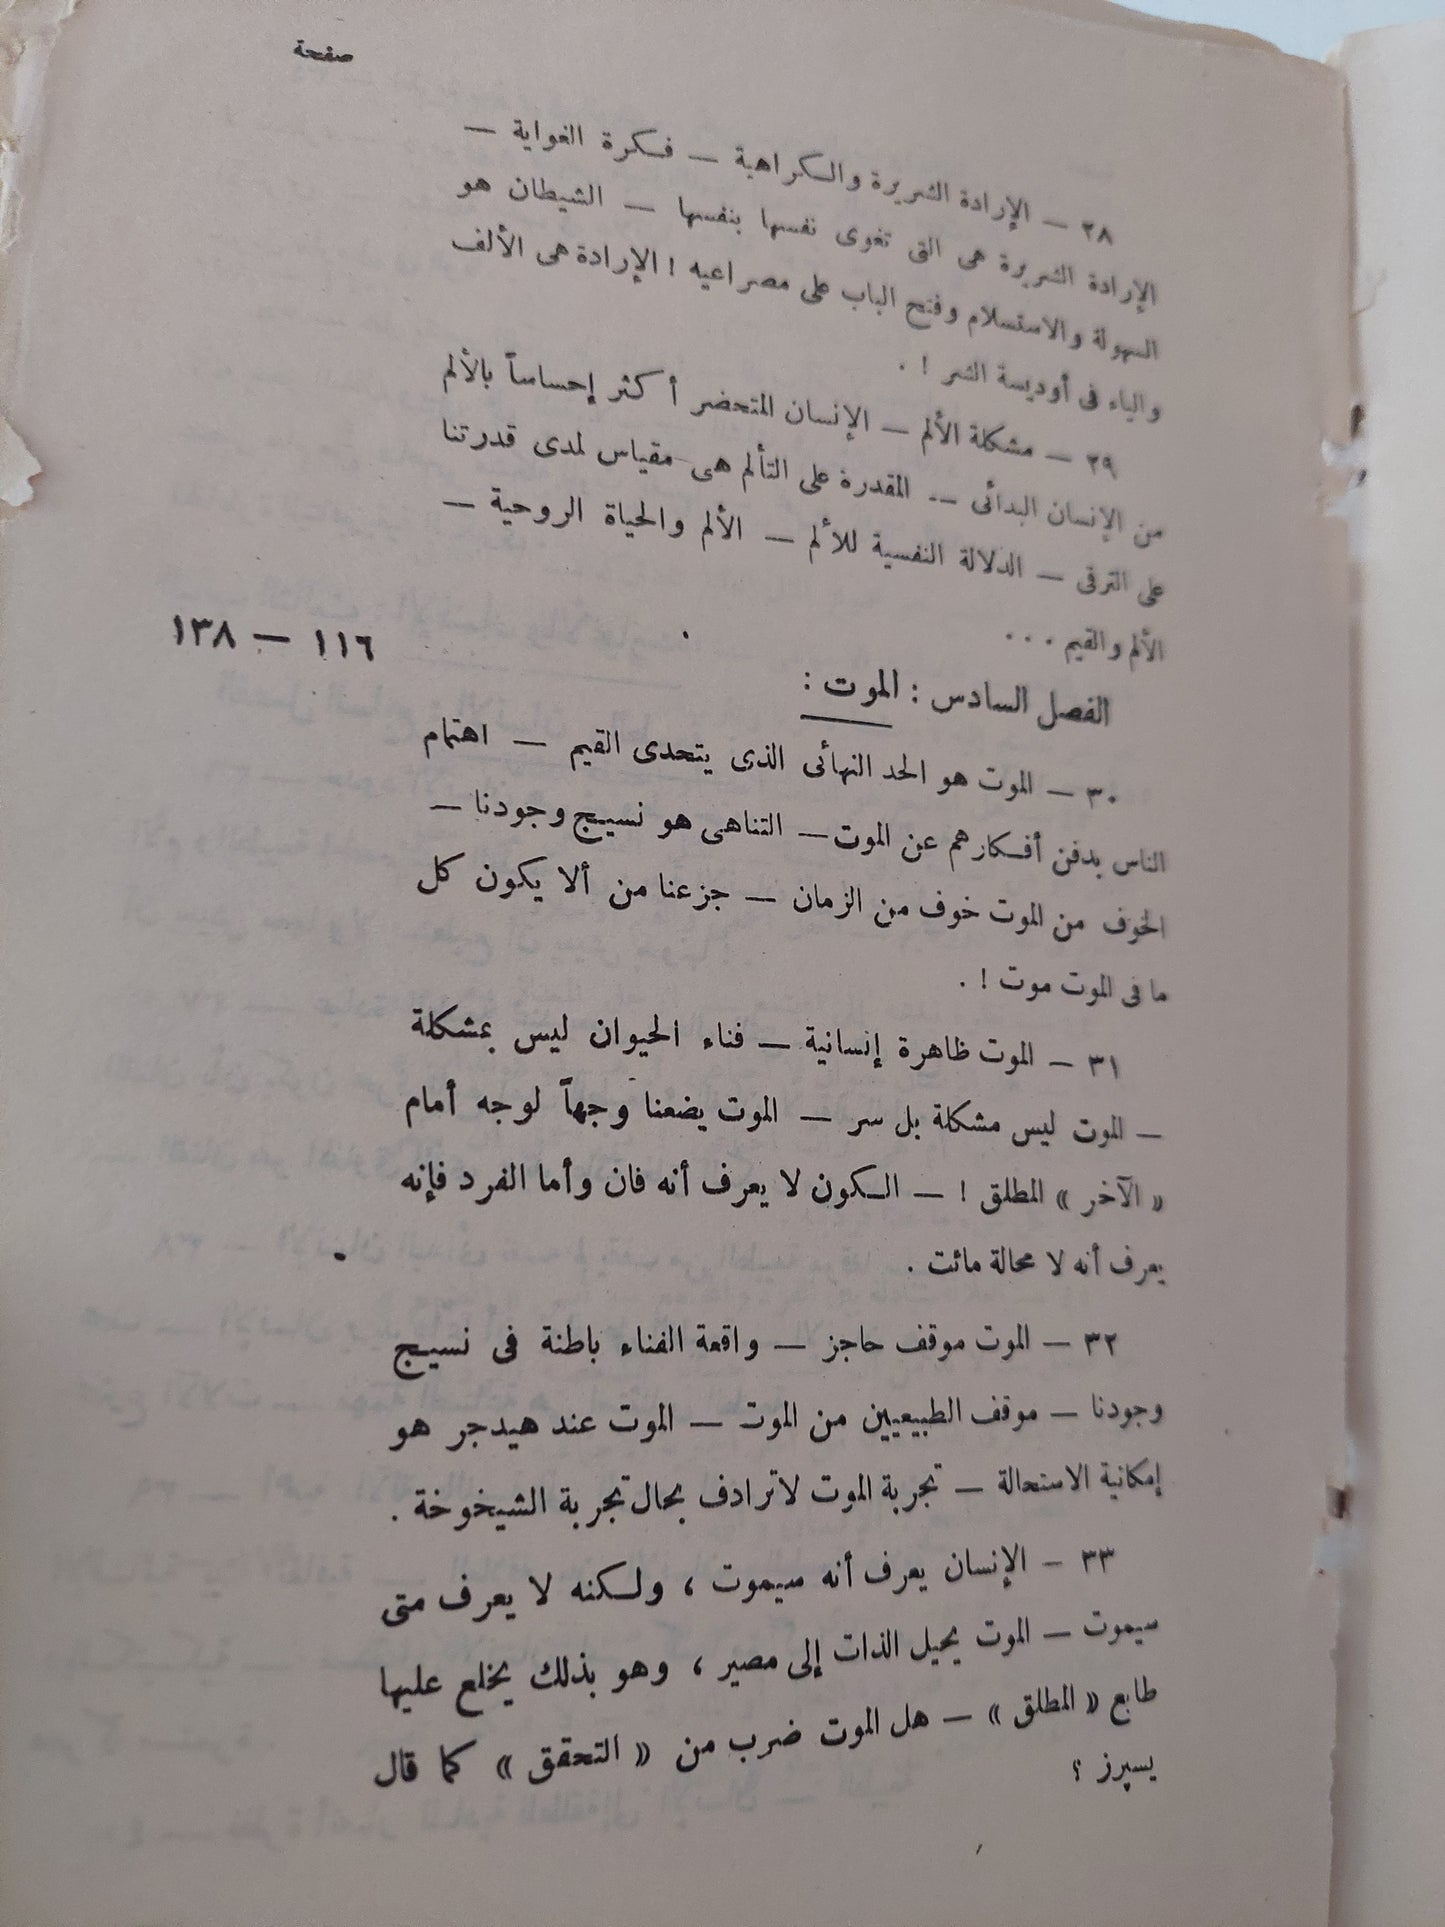 صفحة
٢٨ — الإرادة الشريرة والكراهية — فكرة الغواية —
الإرادة الشريرة هى التى تغوى نفسها بنفسها — الشيطان هو
السهولة والاستسلام وفتح الباب على مصراعيه ! الإرادة هى الألف
والياء فى أوديسة الشر ! .
٢٩ — مشكلة الألم — الإنسان المتحضر أكثر إحساساً بالألم
من الإنسان البدائى — المقدرة على التألم هى مقياس لمدى قدرتنا
على الترقى — الدلالة النفسية للألم — الألم والحياة الروحية —
الألم والقيم ...
الفصل السادس : الموت : ١١٦ — ١٣٨
٣٠ — الموت هو الحد النهائى الذى يتحدى القيم — اهتمام
الناس بدفن أفكارهم عن الموت — التناهى هو نسيج وجودنا —
الخوف من الموت خوف من الزمان — جزعنا من ألا يكون كل
ما فى الموت موت ! .
٣١ — الموت ظاهرة إنسانية — فناء الحيوان ليس بمشكلة
— الموت ليس مشكلة بل سر — الموت يضعنا وجهاً لوجه أمام
« الآخر » المطلق ! — الكون لا يعرف أنه فان وأما الفرد فإنه
يعرف أنه لا محالة مائت .
٣٢ — الموت موقف حاجز — واقعة الفناء باطنة فى نسيج
وجودنا — موقف الطبيعيين من الموت — الموت عند هيدجر هو
إمكانية الاستحالة — تجربة الموت لا ترادف بحال تجربة الشيخوخة .
٣٣ — الإنسان يعرف أنه سيموت ، ولكنه لا يعرف متى
سيموت — الموت يحيل الذات إلى مصير ، وهو بذلك يخلع عليها
طابع « المطلق » — هل الموت ضرب من « التحقق » كما قال
يسپرز ؟